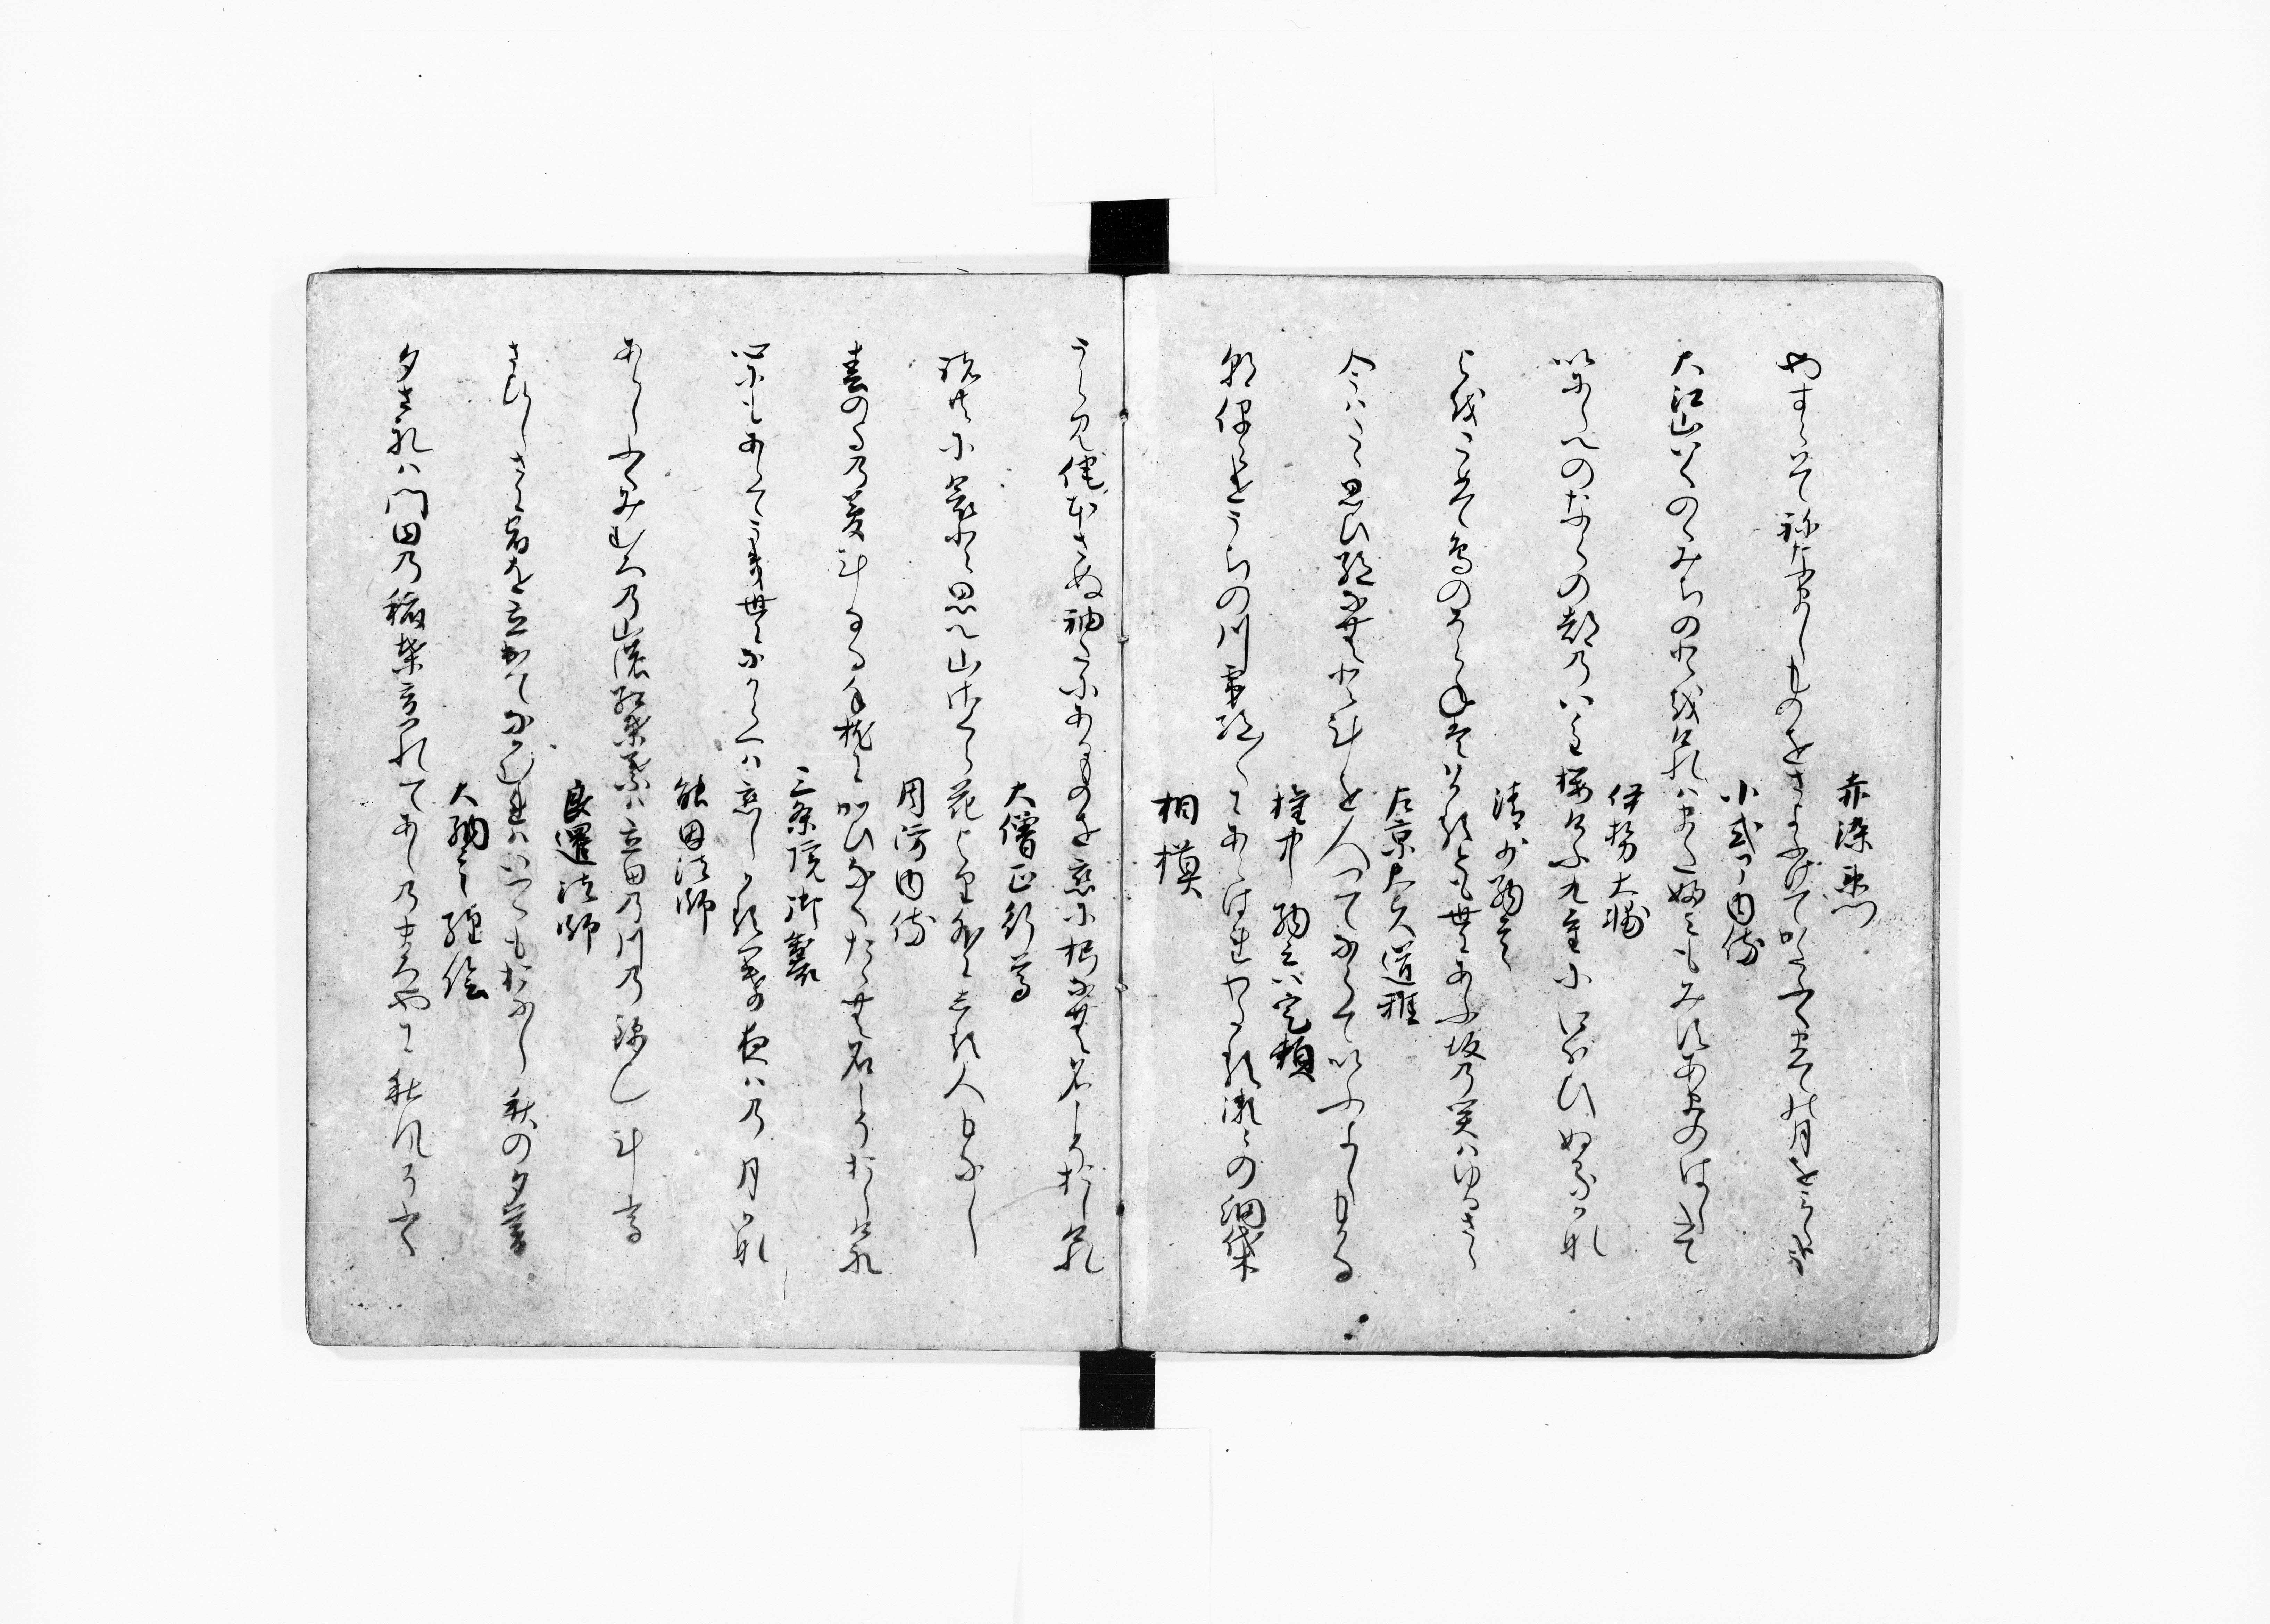 赤染衛門
やすらはて祢なましものをさよふけてかたふくまての月を見し哉
小式ア内侍
大江山いくのゝみちのとをけれはまたふみもみすあまのはしたて
伊勢大輔
いにしへのならの都の八重桜けふ九重ににほひぬるかな
清少納言
よをこめて鳥のそらねははかるとも世にあふ坂の関はゆるさし
左京大夫道雅
今はたゝ思ひ絶なむとはかりを人つてならていふよしもかな
権中納言定頼
朝ほらけうちの川霧絶〱にあらはれわたる瀬ゝの網代木
相模
うらみ侘ほさぬ袖たにある物を恋に朽なむ名こそおしけれ
大僧正行尊
諸共に哀と思へ山さくら花より外にしる人もなし
周防内侍
春のよの夢はかりなる手枕にかひなくたゝむ名こそおしけれ
三条院御製
心にもあらてうき世になからへは恋しかるへき夜はの月かな
能因法師
あらしふくみむろの山の紅葉葉は立田の川の錦也けり
良暹法師
さひしさに宿を立出てなかむれはいつくもおなし秋の夕暮
大納言経信
夕されは門田の稲葉音つれてあしのまろやに秋風そふく